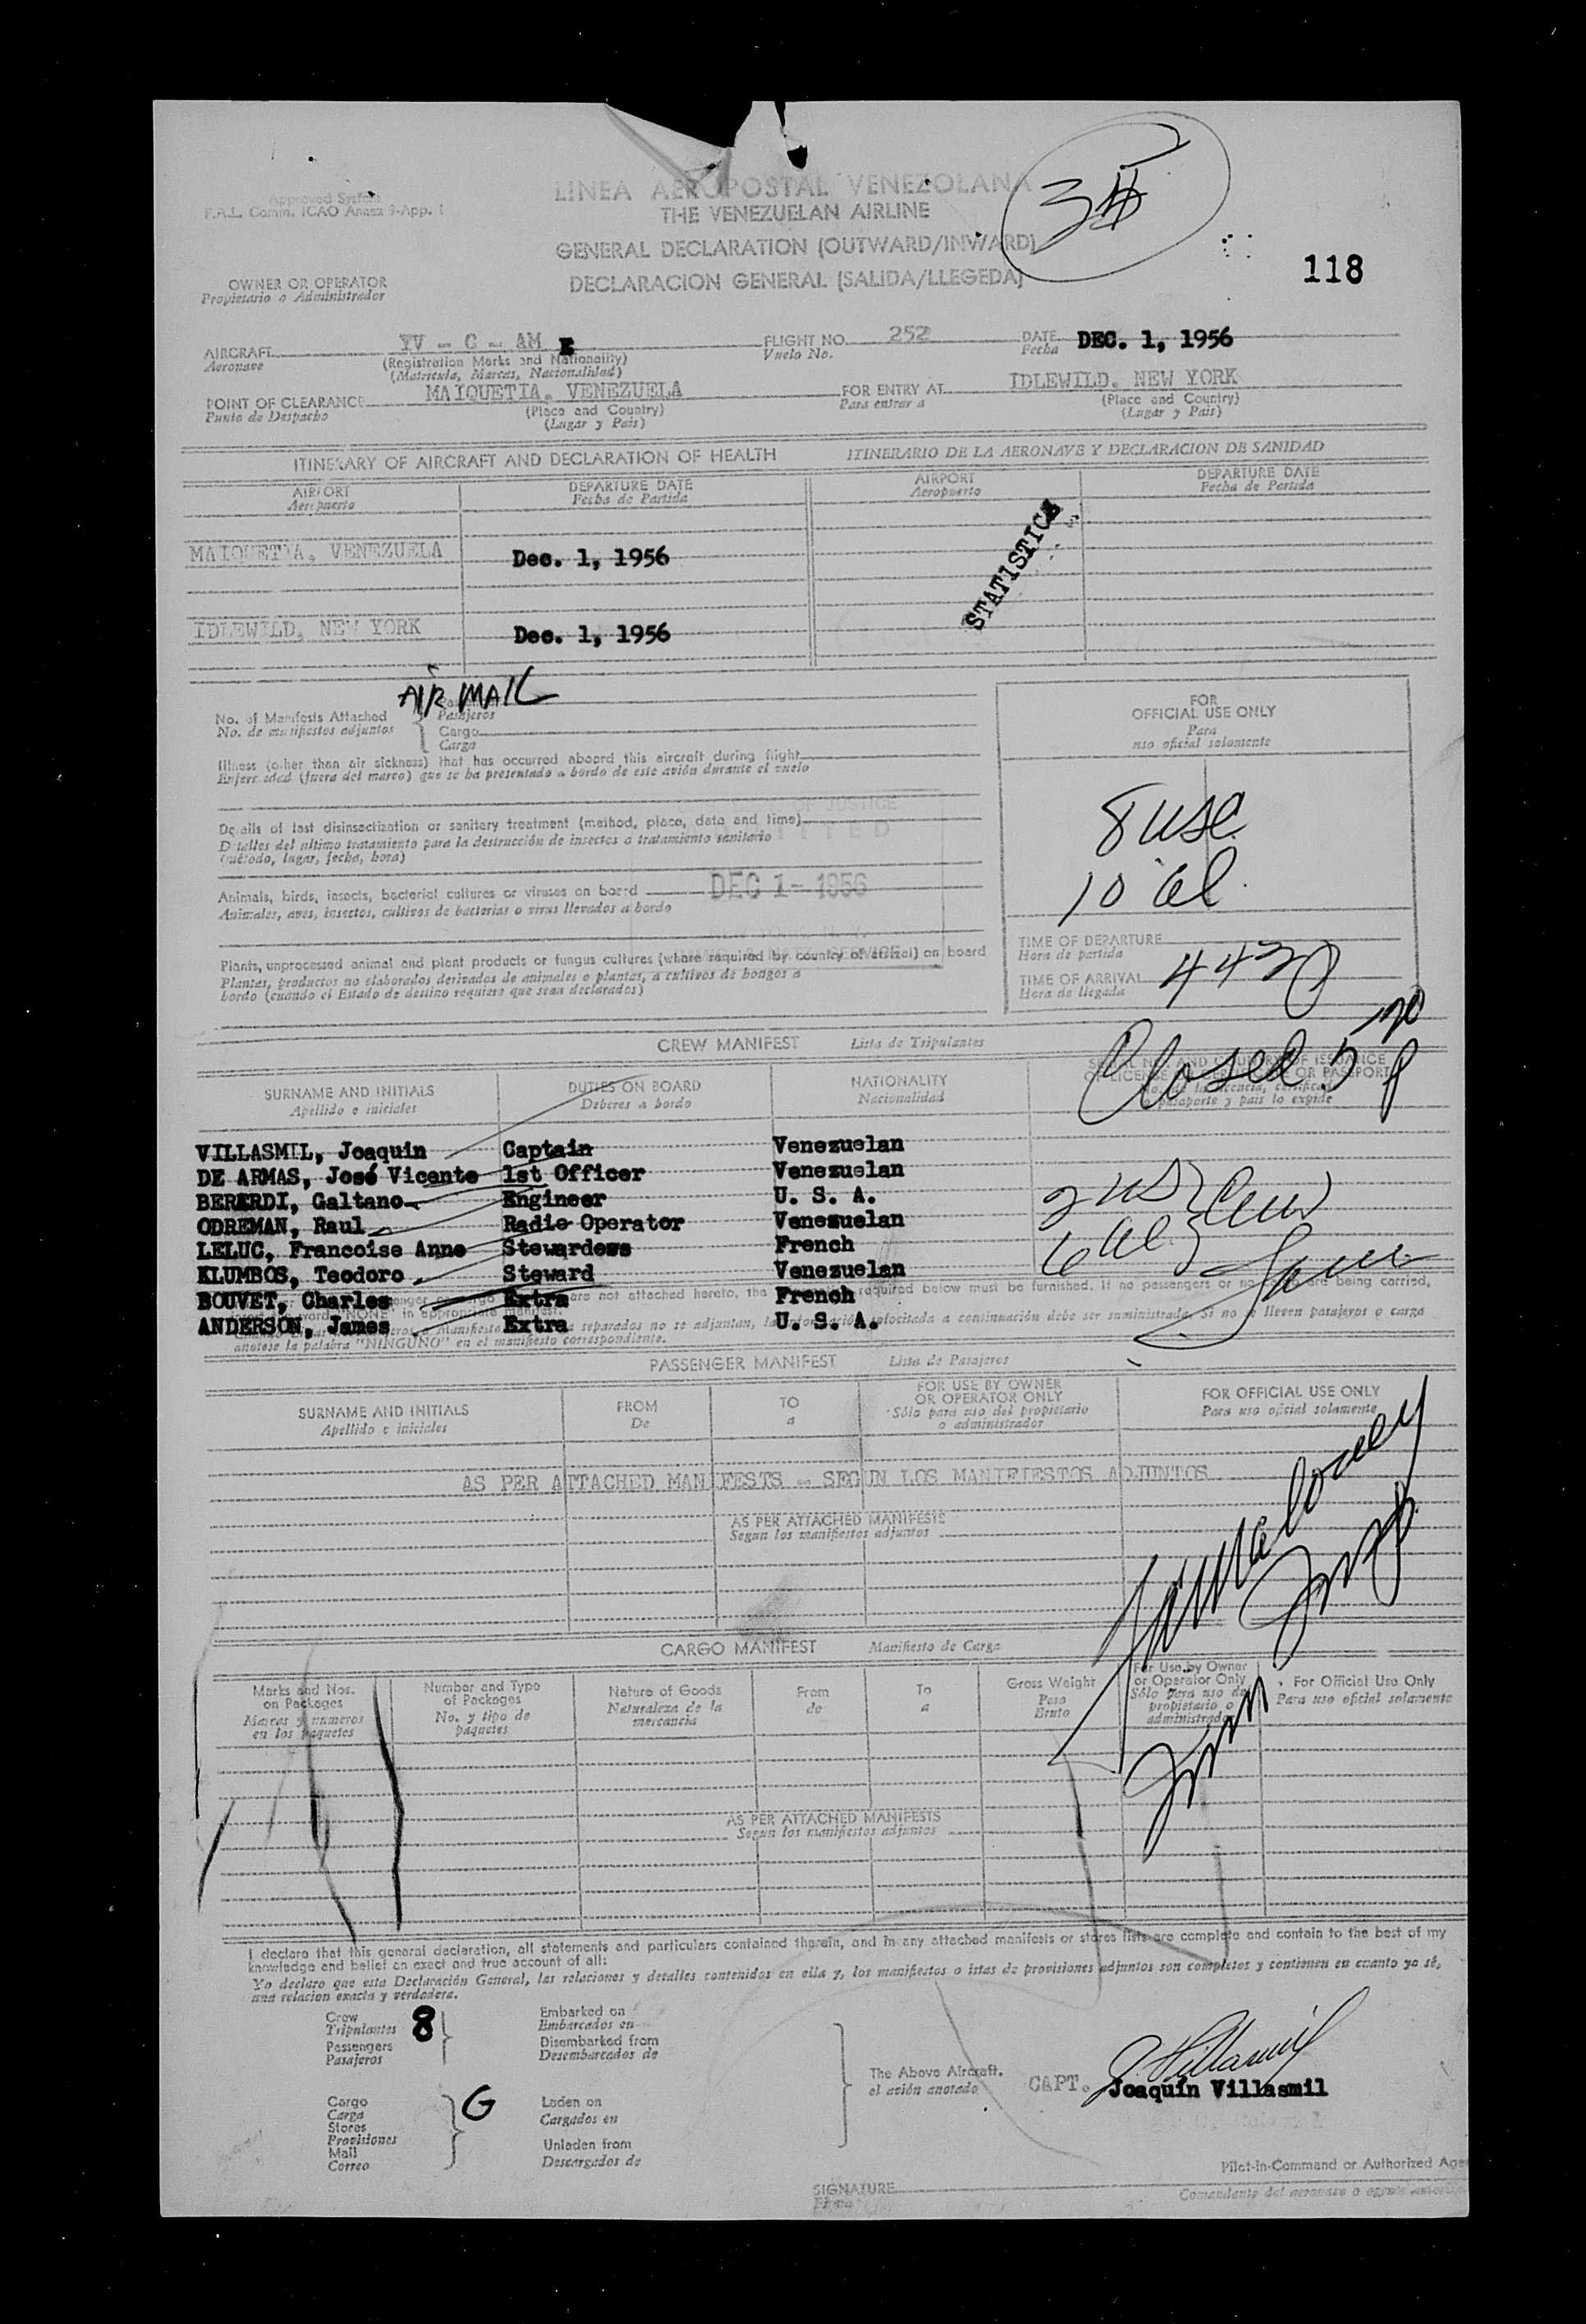 Approved System
F.A.L. Comm. ICAO Annex 9-App. 1
LINEA AEROPOSTAL VENEZOLANA
THE VENEZUELAN AIRLINE
GENERAL DECLARATION (OUTWARD/INWARD)
DECLARACION GENERAL (SALIDA/LLEGEDA)
118
OWNER OR OPERATOR
Propietario o Administrador
AIRCRAFT YV - C - AM E FLIGHT NO. 252 DATE DEC. 1, 1956
Aeronave (Registration Marks and Nationality) Vuelo No. Fecha
(Matricula, Marcas, Nacionalidad)
POINT OF CLEARANCE MAIQUETIA, VENEZUELA FOR ENTRY AT IDLEWILD, NEW YORK
Punto de Despacho (Place and Country) Para entrar a (Place and Country)
(Lugar y Pais) (Lugar y Pais)
ITINERARY OF AIRCRAFT AND DECLARATION OF HEALTH ITINERARIO DE LA AERONAVE Y DECLARACION DE SANIDAD
AIRPORT DEPARTURE DATE AIRPORT DEPARTURE DATE
Aeropuerto Fecha de Partida Aeropuerto Fecha de Partida
MAIQUETIA, VENEZUELA Dec. 1, 1956
STATISTICS
IDLEWILD, NEW YORK Dec. 1, 1956
AIR MAIL
No. of Manifests Attached Pasajeros
No. de manifiestos adjuntos Cargo
Carga
FOR
OFFICIAL USE ONLY
Para
uso oficial solamente
Illness (other than air sickness) that has occurred aboard this aircraft during flight
Enfermedad (fuera del mareo) que se ha presentado a bordo de este avión durante el vuelo
Details of last disinsectization or sanitary treatment (method, place, date and time)
Detalles del ultimo tratamiento para la destrucción de insectos o tratamiento sanitario
(método, lugar, fecha, hora)
8 usc
10 al
Animals, birds, insects, bacterial cultures or viruses on board
Animales, aves, insectos, cultivos de bacterias o virus llevados a bordo
DEC 1 - 1956
Plants, unprocessed animal and plant products or fungus cultures (where required by country of arrival) on board
Plantas, productos no elaborados derivados de animales o plantas, o cultivos de hongos a
bordo (cuando el Estado de destino requiera que sean declarados)
TIME OF DEPARTURE
Hora de partida
TIME OF ARRIVAL 442p
Hora de llegada
Closed 5 20 p
CREW MANIFEST Lista de Tripulantes
SURNAME AND INITIALS DUTIES ON BOARD NATIONALITY
Apellido e iniciales Deberes a bordo Nacionalidad
VILLASMIL, Joaquin Captain Venezuelan
DE ARMAS, José Vicente 1st Officer Venezuelan
BERARDI, Galtano Engineer U. S. A.
ODREMAN, Raul Radio Operator Venezuelan
LELUC, Francoise Anne Stewardess French
KLUMBOS, Teodoro Steward Venezuelan
BOUVET, Charles Extra French
ANDERSON, James Extra U. S. A.
anotese la palabra "NINGUNO" en el manifiesto correspondiente.
PASSENGER MANIFEST Lista de Pasajeros
SURNAME AND INITIALS FROM TO FOR USE BY OWNER OR OPERATOR ONLY FOR OFFICIAL USE ONLY
Apellido e iniciales De a Sólo para uso del propietario o administrador Para uso oficial solamente
AS PER ATTACHED MANIFESTS - SEGUN LOS MANIFIESTOS ADJUNTOS
AS PER ATTACHED MANIFESTS
Segun los manifiestos adjuntos
CARGO MANIFEST Manifiesto de Carga
Marks and Nos. on Packages Number and Type of Packages Nature of Goods From To Gross Weight For Use by Owner or Operator Only For Official Use Only
Marcas y numeros en los paquetes No. y tipo de paquetes Naturaleza de la mercancia de a Peso Bruto Sólo para uso de propietario o administrador Para uso oficial solamente
AS PER ATTACHED MANIFESTS
Segun los manifiestos adjuntos
I declare that this general declaration, all statements and particulars contained therein, and in any attached manifests or stores lists are complete and contain to the best of my
knowledge and belief an exact and true account of all:
Yo declaro que esta Declaración General, las relaciones y detalles contenidos en ella y, los manifiestos o istas de provisiones adjuntos son completos y contienen en cuanto yo sé,
una relacion exacta y verdadera.
Crew 8 Embarked on
Tripulantes Embarcados en
Passengers Disembarked from
Pasajeros Desembarcados de
The Above Aircraft.
el avión anotado
CAPT. J. Villasmil
Joaquín Villasmil
Cargo G Laden on
Carga Cargados en
Stores
Provisiones
Mail Unladen from
Correo Descargados de
Pilot-in-Command or Authorized Age
SIGNATURE
Firma